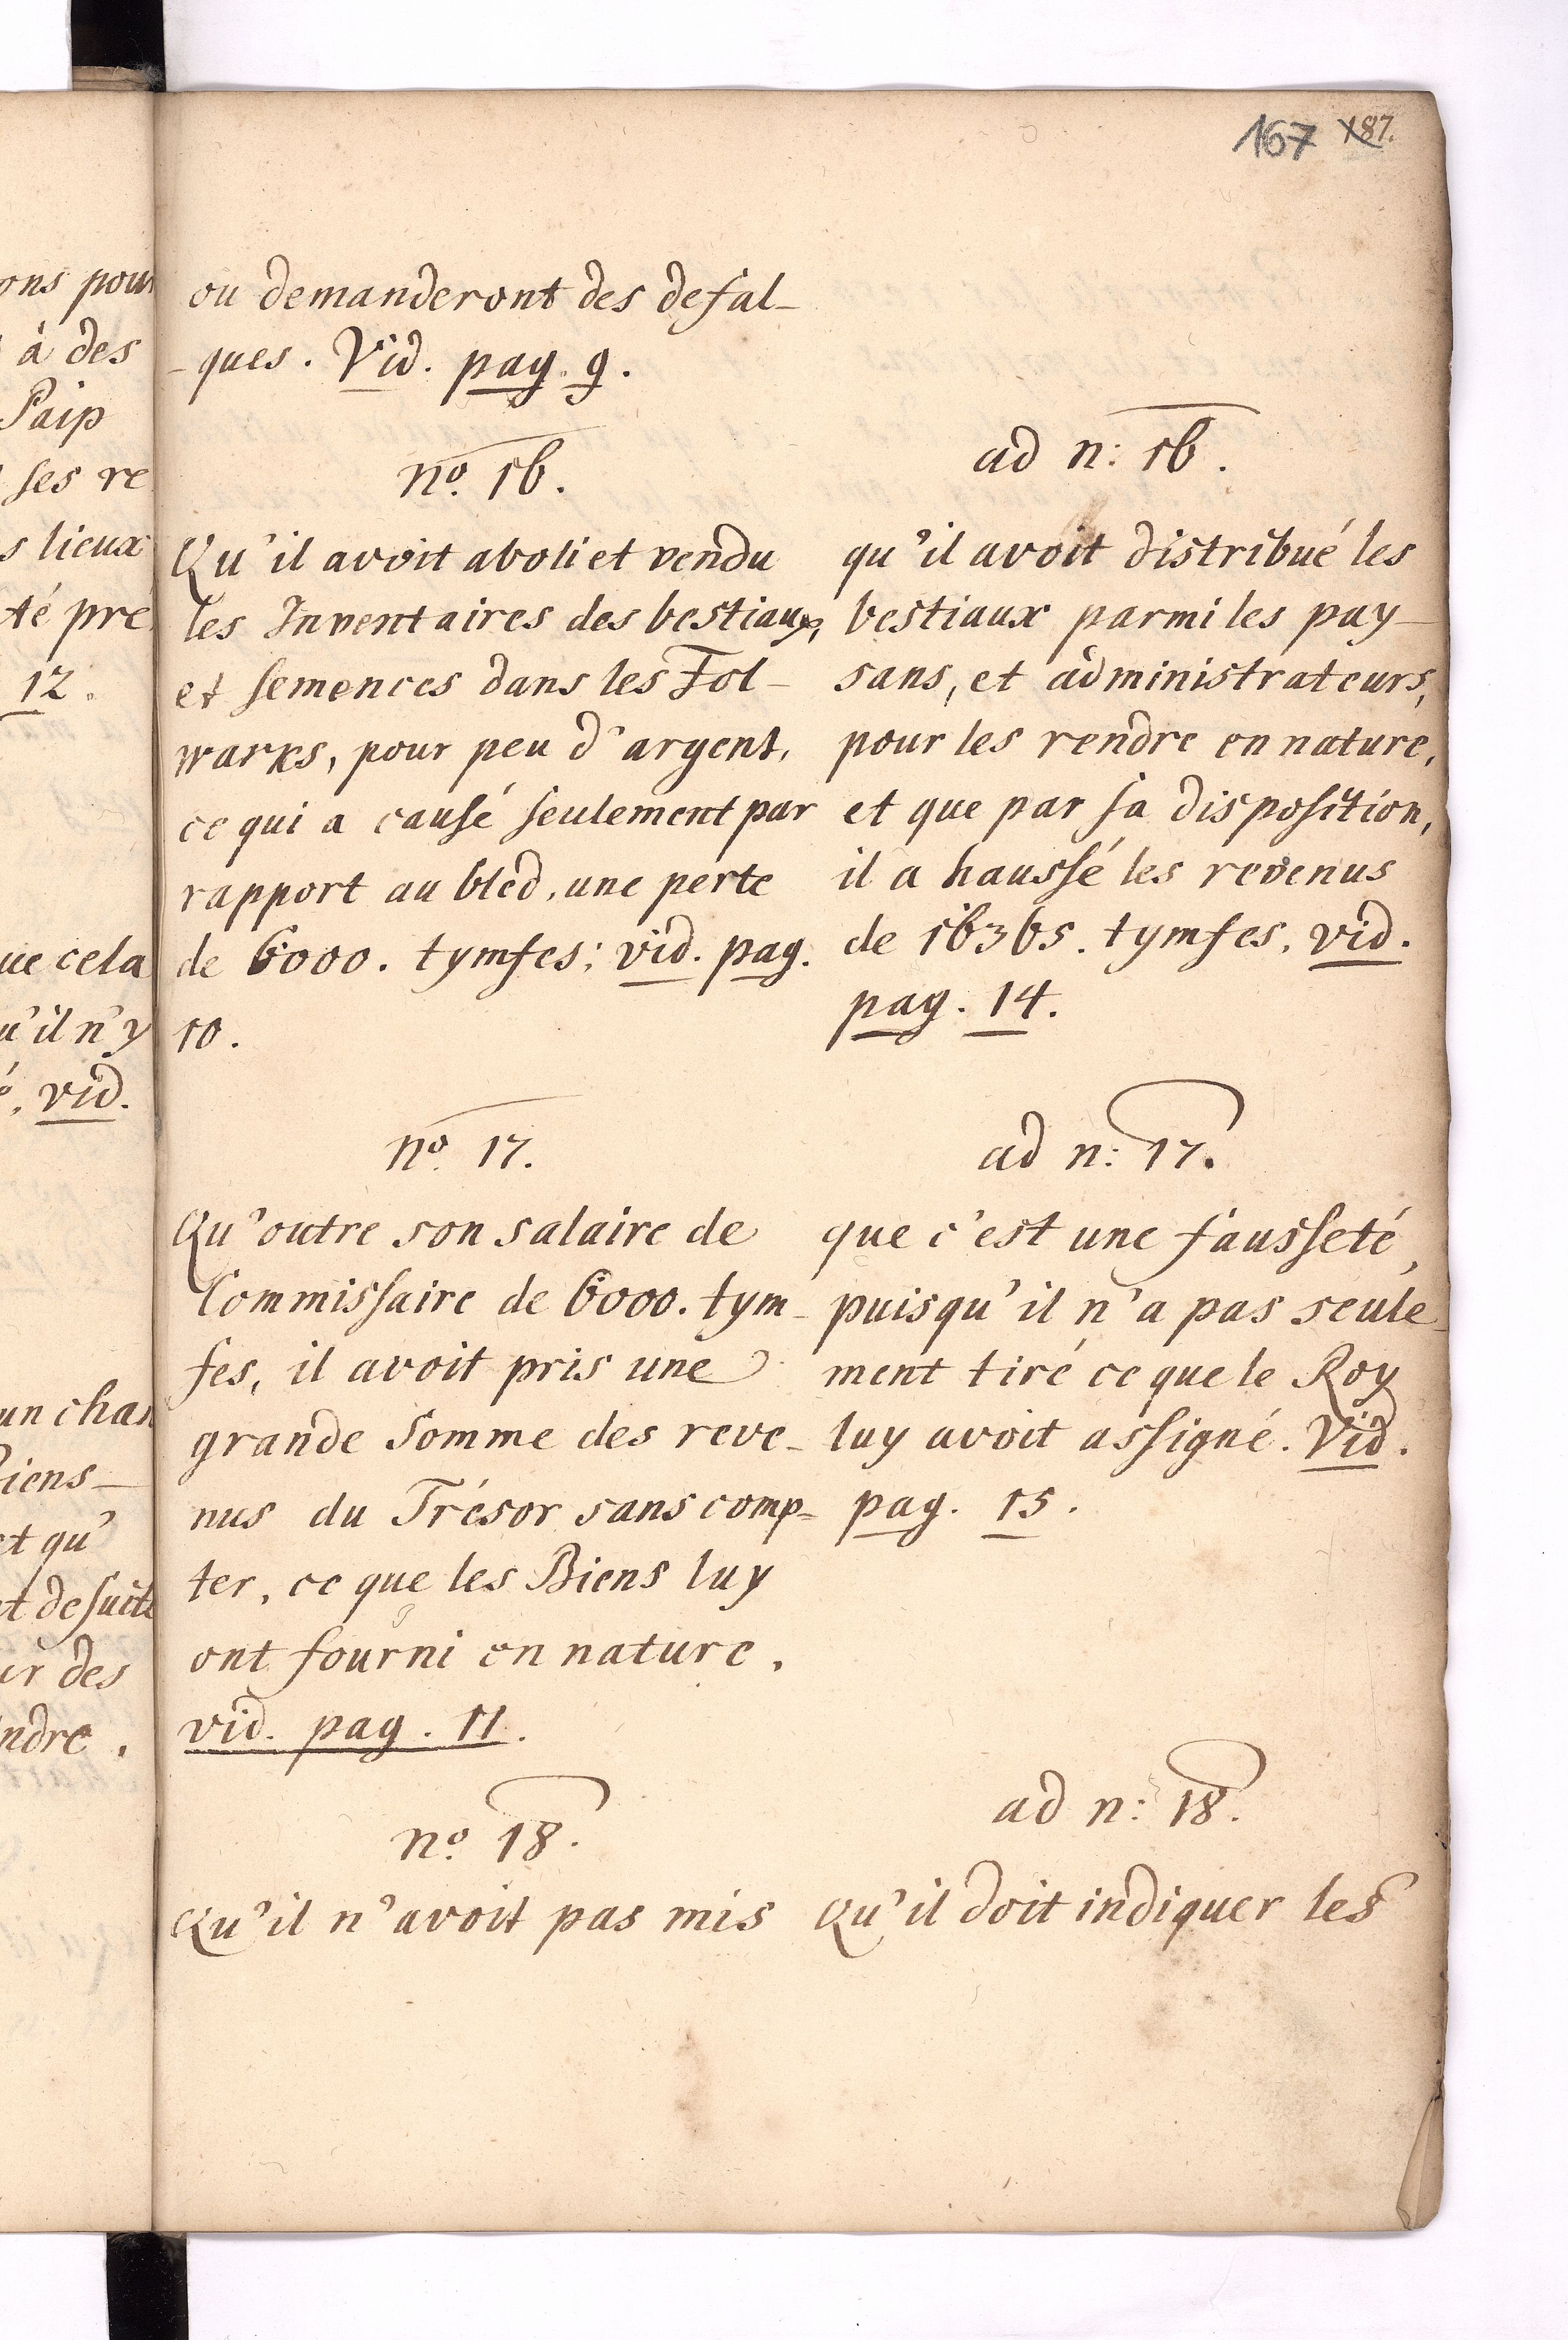 167 187.
ou demanderont des defal-
-ques. Vid. pag. 9.
no. 16.
Qu'il avoit aboli et vendu
les Inventaires des bestiaux,
et semences dans les Fol-
warks, pour peu d'argent,
ce qui a causé seulement par
rapport au bled, une perte
de 6000. tymfes; vid. pag.
10.
no. 17.
Qu'outre son salaire de
Commissaire de 6000. tym-
fes, il avoit pris une
grande Somme des reve-
nus du Trésor sans comp-
ter, ce que les Biens luy
ont fourni en nature.
vid. pag. 11.
no. 18.
Qu'il n'avoit pas mis
ad n: 16.
qu'il avoit distribué les
bestiaux parmi les pay-
sans, et administrateurs,
pour les rendre en nature,
et que par sa disposition,
il a haussé les revenus
de 16365. tymfes. vid.
pag. 14.
ad n: 17.
que c'est une fausseté,
puisqu'il n'a pas seule-
ment tiré ce que le Roy
luy avoit assigné. Vid.
pag. 15.
ad n: 18.
Qu'il doit indiquer les
ons pour
à des
Paip
ses re
s lieux
té pré
12.
ue cela
u'il n'y
vid.
un chan
Biens-
et qu'
et de suite
ir des
ndre.